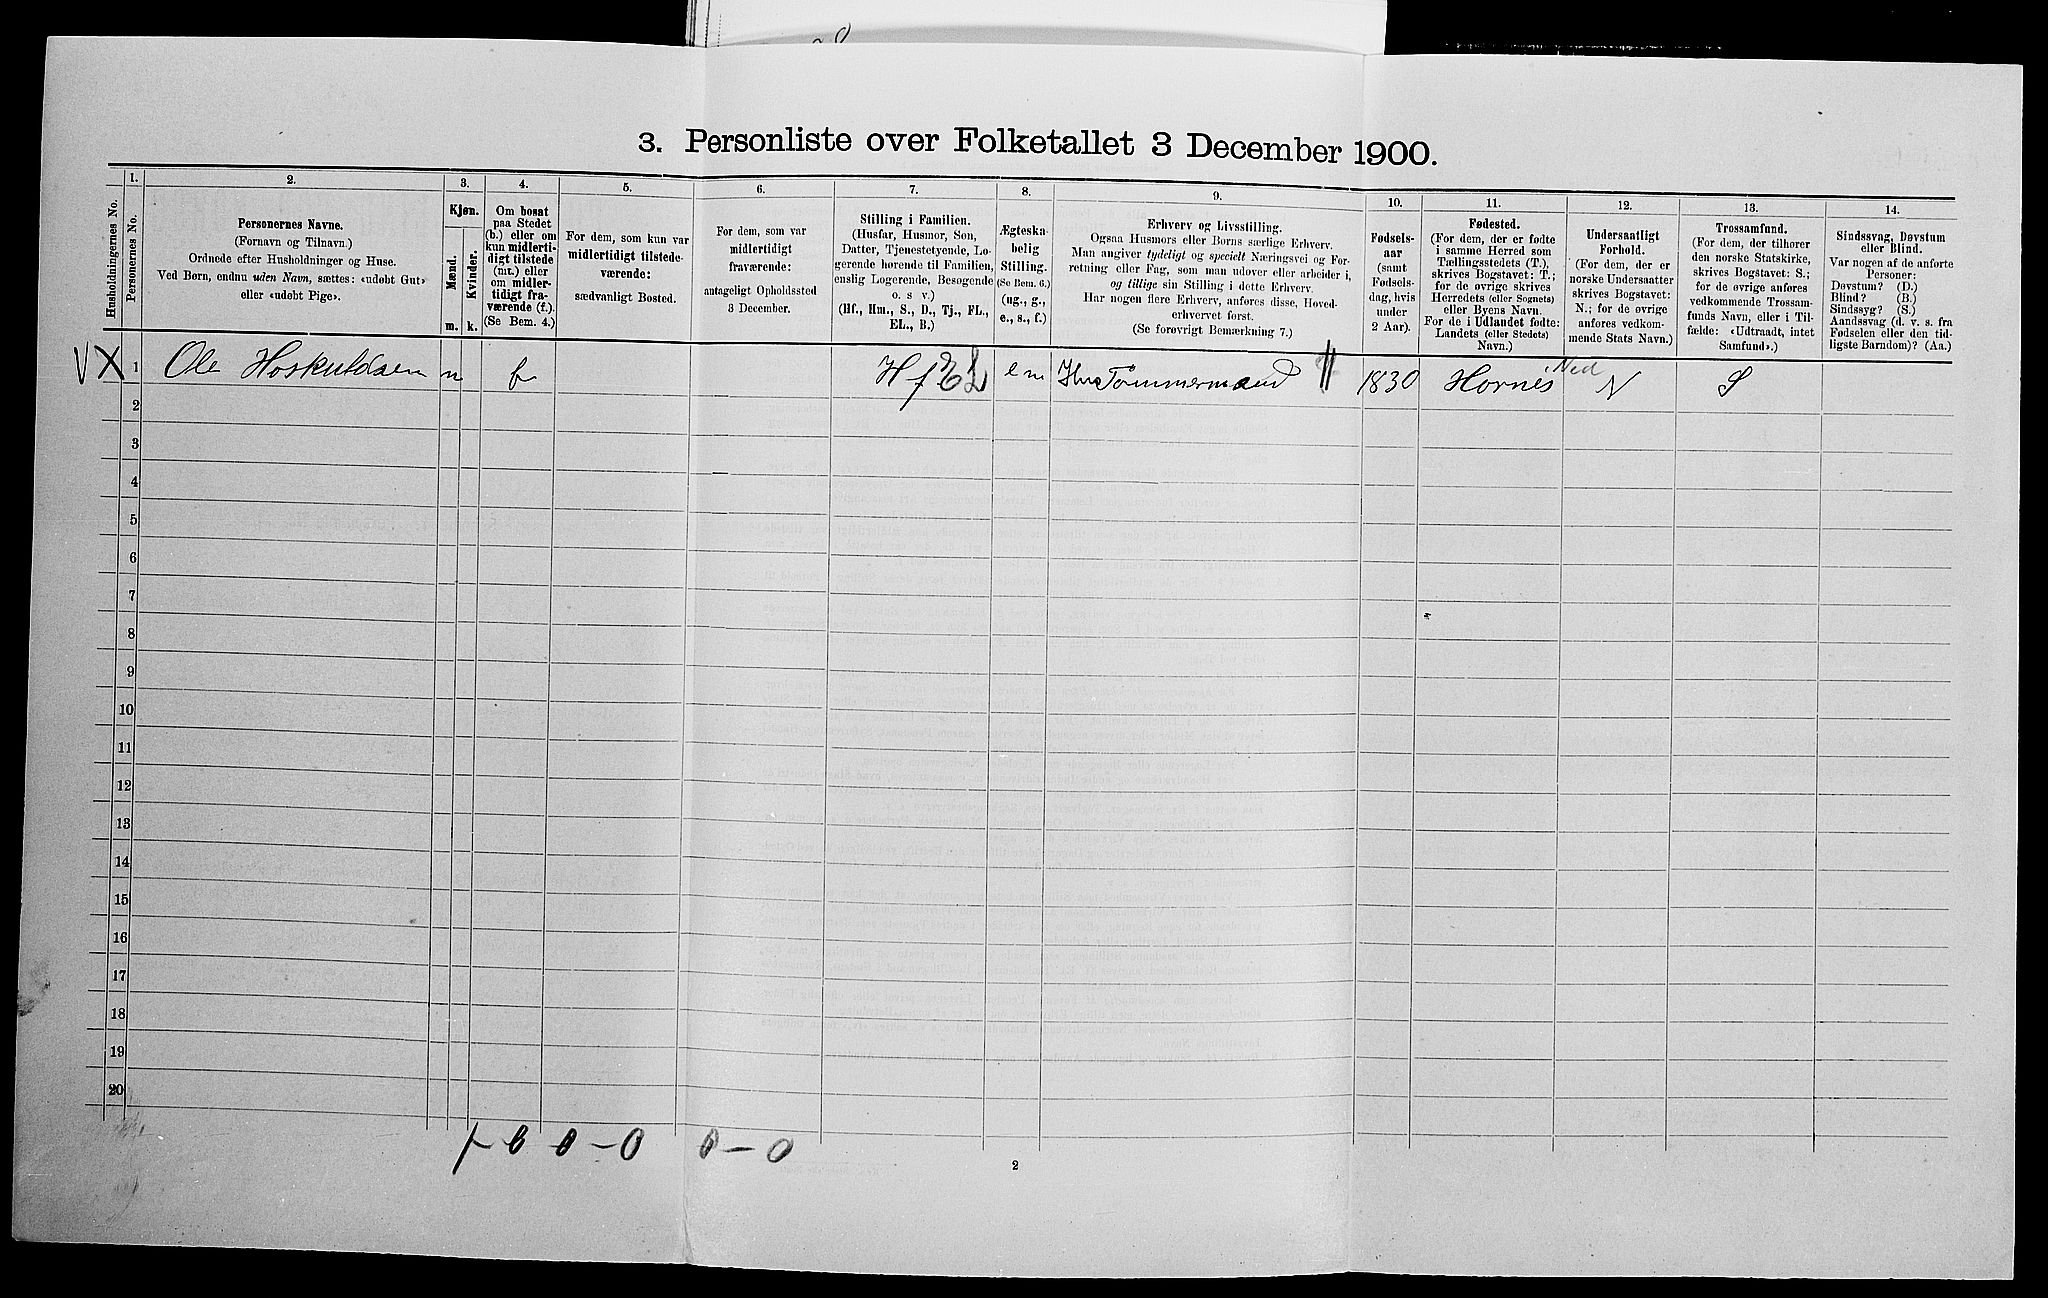 3. Personliste over Folketallet 3 December 1900.
Husholdningernes No.
1.
Personernes No.
2.
Personernes Navne.
(Fornavn og Tilnavn.)
Ordnede efter Husholdninger og Huse.
Ved Børn, endnu uden Navn, sættes: «udøbt Gut»
eller «udøbt Pige».
3.
Kjøn.
Mænd.
Kvinder.
m.
k.
4.
Om bosat
paa Stedet
(b.) eller om
kun midlerti-
digt tilstede
(mt.) eller
om midler-
tidigt fra-
værende (f.).
(Se Bem. 4.)
5.
For dem, som kun var
midlertidigt tilstede-
værende:
sædvanligt Bosted.
6.
For dem, som var
midlertidigt
fraværende:
antageligt Opholdssted
3 December.
7.
Stilling i Familien.
(Husfar, Husmor, Søn,
Datter, Tjenestetyende, Lo-
gerende hørende til Familien,
enslig Logerende, Besøgende
o. s v.)
(Hf., Hm., S., D., Tj., FL.,
EL., B.)
8.
Ægteska-
belig
Stilling.
(Se Bem. 6.)
(ug., g.,
e., s., f.)
9.
Erhverv og Livsstilling.
Ogsaa Husmors eller Børns særlige Erhverv.
Man angiver tydeligt og specielt Næringsvei og For-
retning eller Fag, som man udøver eller arbeider i,
og tillige sin Stilling i dette Erhverv.
Har nogen flere Erhverv, anføres disse, Hoved-
erhvervet først.
(Se forøvrigt Bemærkning 7.)
10.
Fødsels-
aar
(samt
Fødsels-
dag, hvis
under
2 Aar).
11.
Fødested.
(For dem, der er fødte
i samme Herred som
Tællingsstedets (T.),
skrives Bogstavet: T.;
for de øvrige skrives
Herredets (eller Sognets)
eller Byens Navn.
For de i Udlandet fødte:
Landets (eller Stedets)
Navn.)
12.
Undersaatligt
Forhold.
(For dem, der er
norske Undersaatter
skrives Bogstavet:
N.; for de øvrige
anføres vedkom-
mende Stats Navn.)
13.
Trossamfund.
(For dem, der tilhører
den norske Statskirke,
skrives Bogstavet: S.;
for de øvrige anføres
vedkommende Trossam-
funds Navn, eller i Til-
fælde: «Udtraadt, intet
Samfund».)
14.
Sindssvag, Døvstum
eller Blind.
Var nogen af de anførte
Personer:
Døvstum? (D.)
Blind? (B.)
Sindssyg? (S.)
Aandssvag (d. v. s. fra
Fødselen eller den tid-
ligste Barndom)? (Aa.)
V X 1 Ole Hoskuldsen m b Hf EL em Tømmermand 1830 Hornes Ned N S
2
3
4
5
6
7
8
9
10
11
12
13
14
15
16
17
18
19
20
1 - 0 0 - 0 0 - 0
2